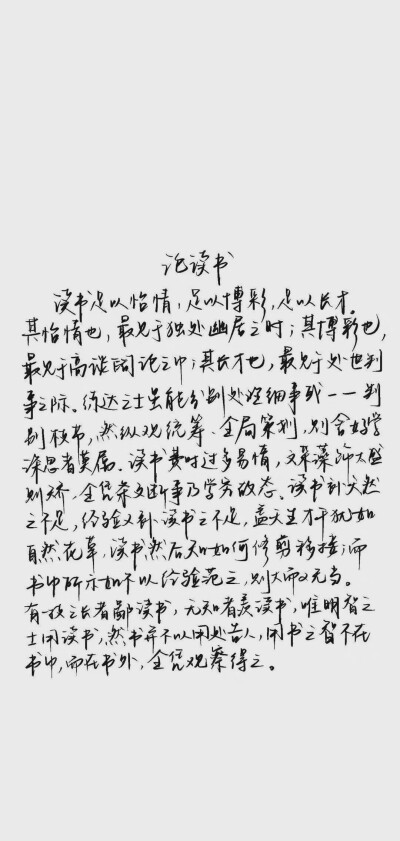 论读书
读书足以怡情,足以博彩,足以长才。
其怡情也,最见于独处幽居之时;其博彩也,
最见于高谈阔论之中;其长才也,最见于处世判
事之际。练达之士虽能分别处理细事或一一判
别枝节,然纵观统筹、全局策划,则舍好学
深思者莫属。读书费时过多易惰,文采藻饰太盛
则矫,全凭条文断事乃学究故态。读书补天然
之不足,经验又补读书之不足,盖天生才干犹如
自然花草,读书然后知如何修剪移接;而
书中所示如不以经验范之,则大而又无当。
有技之长者鄙读书,无知者羡读书,唯明智之
士用读书,然书并不以用处告人,用书之智不在
书中,而在书外,全凭观察得之。